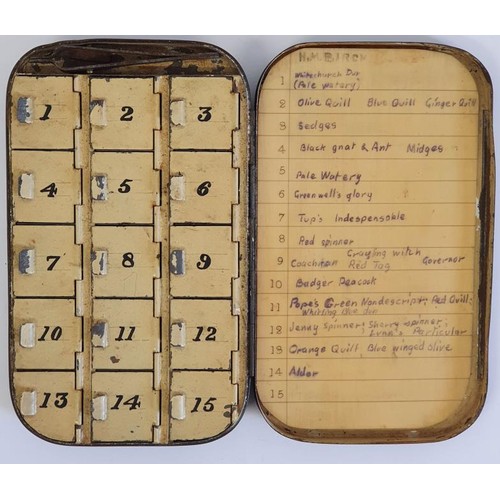 1 2 3
4 5 6
7 8 9
10 11 12
13 14 15
H.M. BIRCH
1 Whitechurch Dun
(Pale watery)
2 Olive Quill Blue Quill Ginger Quill
3 Sedges
4 Black gnat & Ant Midges
5 Pale Watery
6 Greenwell's glory
7 Tup's Indespensable
8 Red spinner
Grayling witch
9 Coachman Red Tag Governor
10 Badger Peacock
11 Pope's Green Nondescript; Red Quill;
Whirling Blue dun
12 Jenny Spinner; Sherry spinner;
Lunn's Particular
13 Orange Quill, Blue winged olive
14 Alder
15